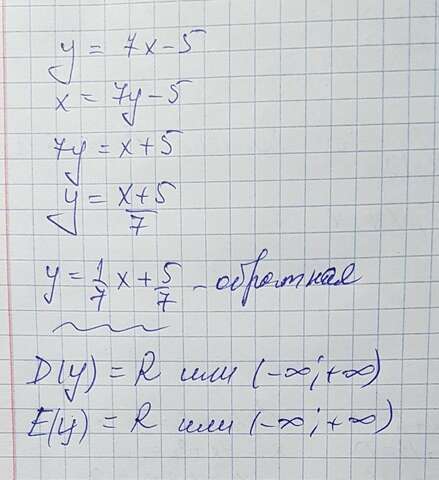 y = 7x - 5
x = 7y - 5
7y = x + 5
y = (x+5)/7
y = 1/7 x + 5/7 - обратная
D(y) = R или (-∞; +∞)
E(y) = R или (-∞; +∞)